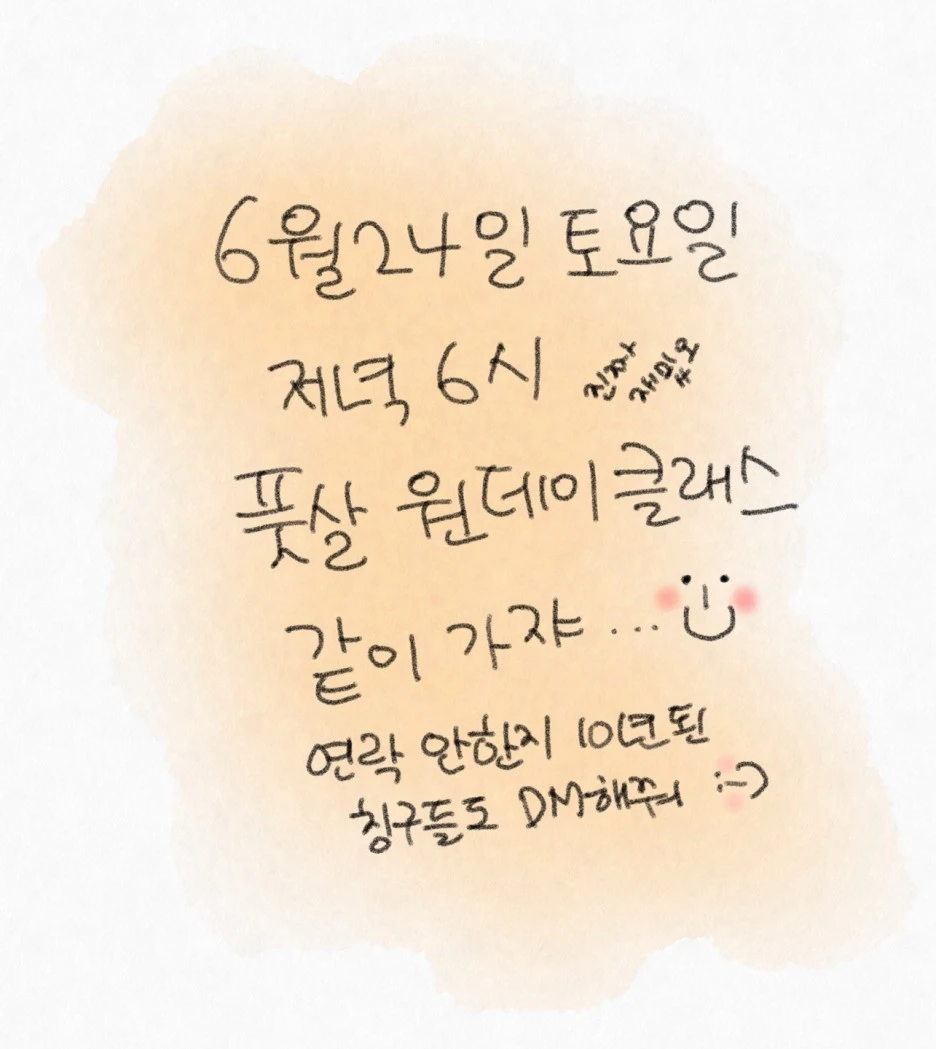 6월24일 토요일
저녁 6시
진짜
재밌쑈
풋살 원데이클래스
같이 가쟈...
연락 안한지 10년된
칭구들도 DM해줘 :-)